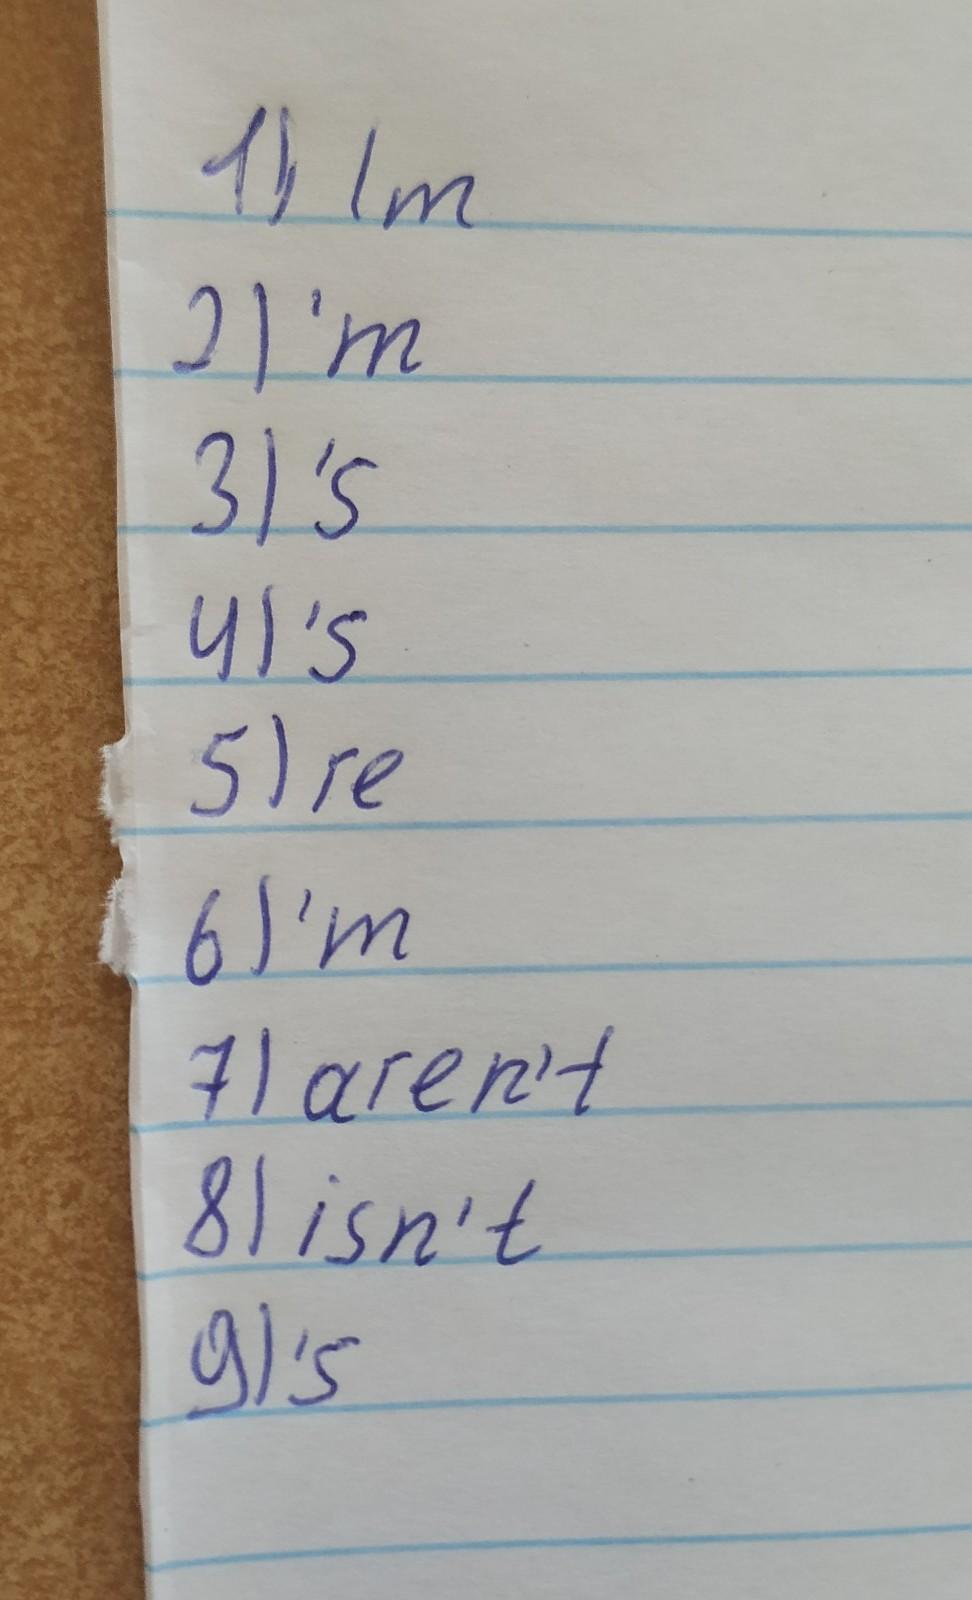 1) Im
2) 'm
3) 's
4) 's
5) re
6) 'm
7) aren't
8) isn't
9) 's